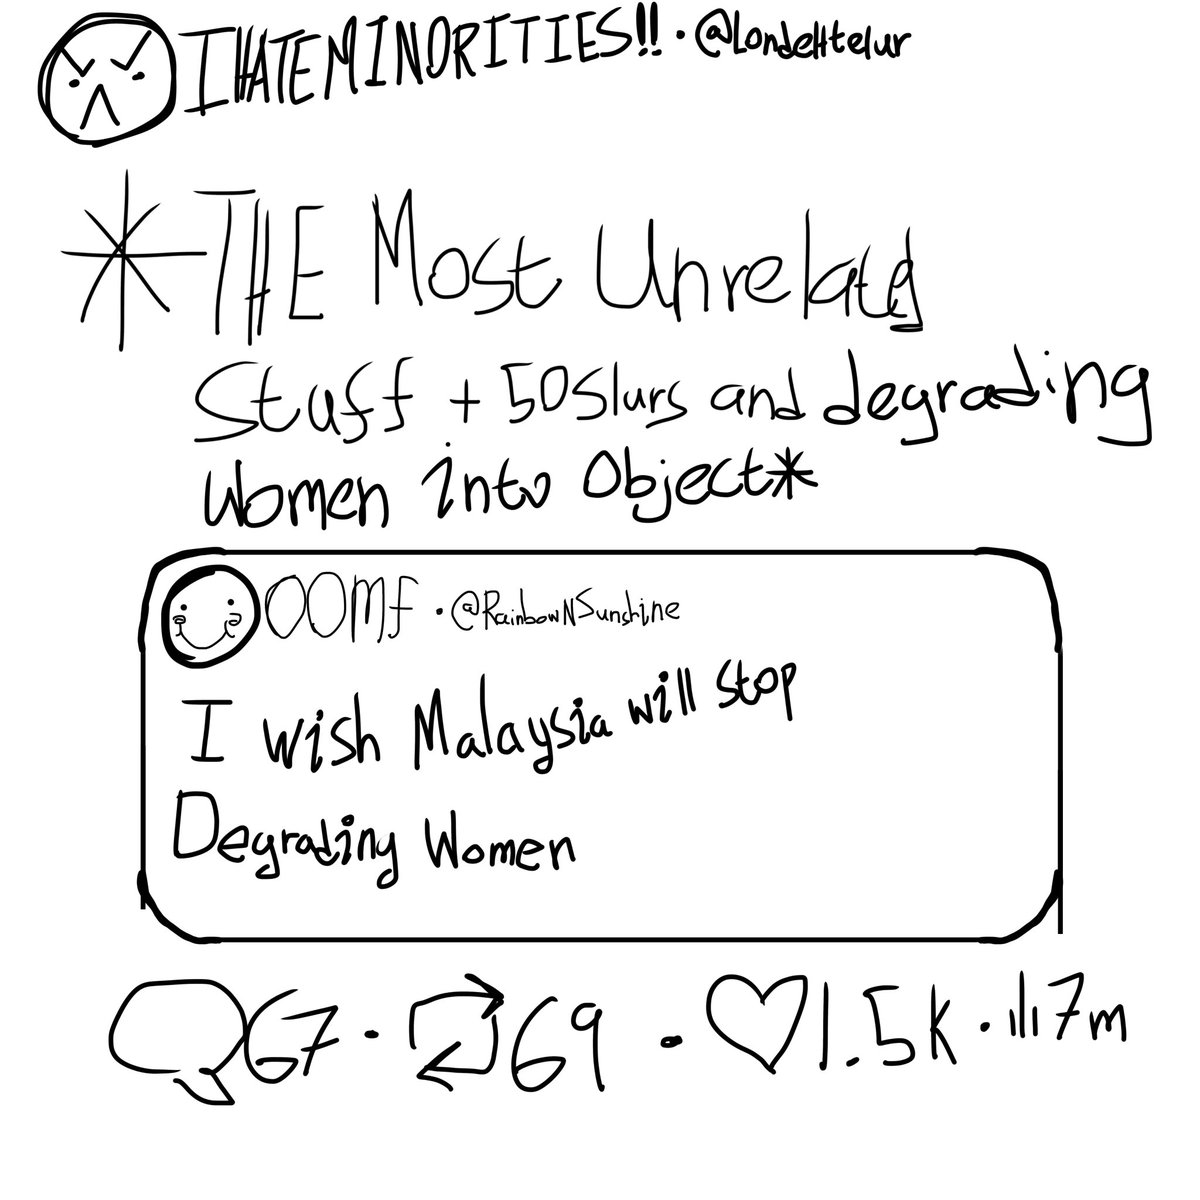 IHATEMINORITIES!! · @LondeHtelur
*THE Most Unrelated
Stuff + 50 Slurs and degrading
Women into Object*
OOMF · @RainbowNSunshine
I wish Malaysia will stop
Degrading Women
67 · 69 · 1.5K · 7m